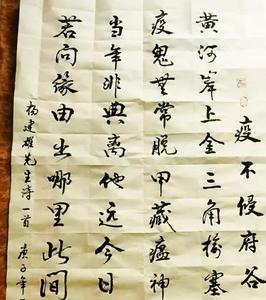 疫不侵府谷
黄河岸上金三角榆塞
疫鬼無常脱甲藏瘟神
当年非典离他远今日
若问缘由出哪里此间
杨建雄先生诗一首 庚子年